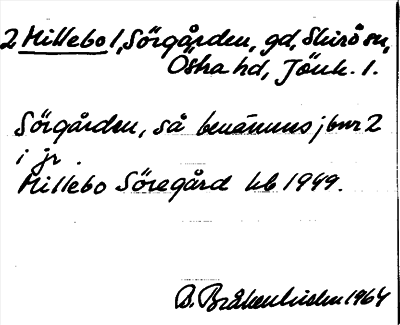 2 Millebo 1, Sörgården, gd, Skirö sn,
Östra hd, Jönk. l.
Sörgården, så benämnes jbnr 2
i jr.
Millebo Söregård kb 1949.
B. Bråkenhielm 1964